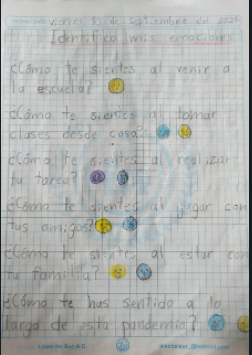 viernes 10 de septiembre del 2021
Identifico mis emociones
¿Cómo te sientes al venir a
la escuela?
¿Cómo te sientes al tomar
clases desde casa?
¿Cómo te sientes al realizar
tu tarea?
¿Cómo te sientes al jugar con
tus amigos?
¿Cómo te sientes al estar con
tu familia?
¿Cómo te has sentido a lo
largo de esta pandemia?